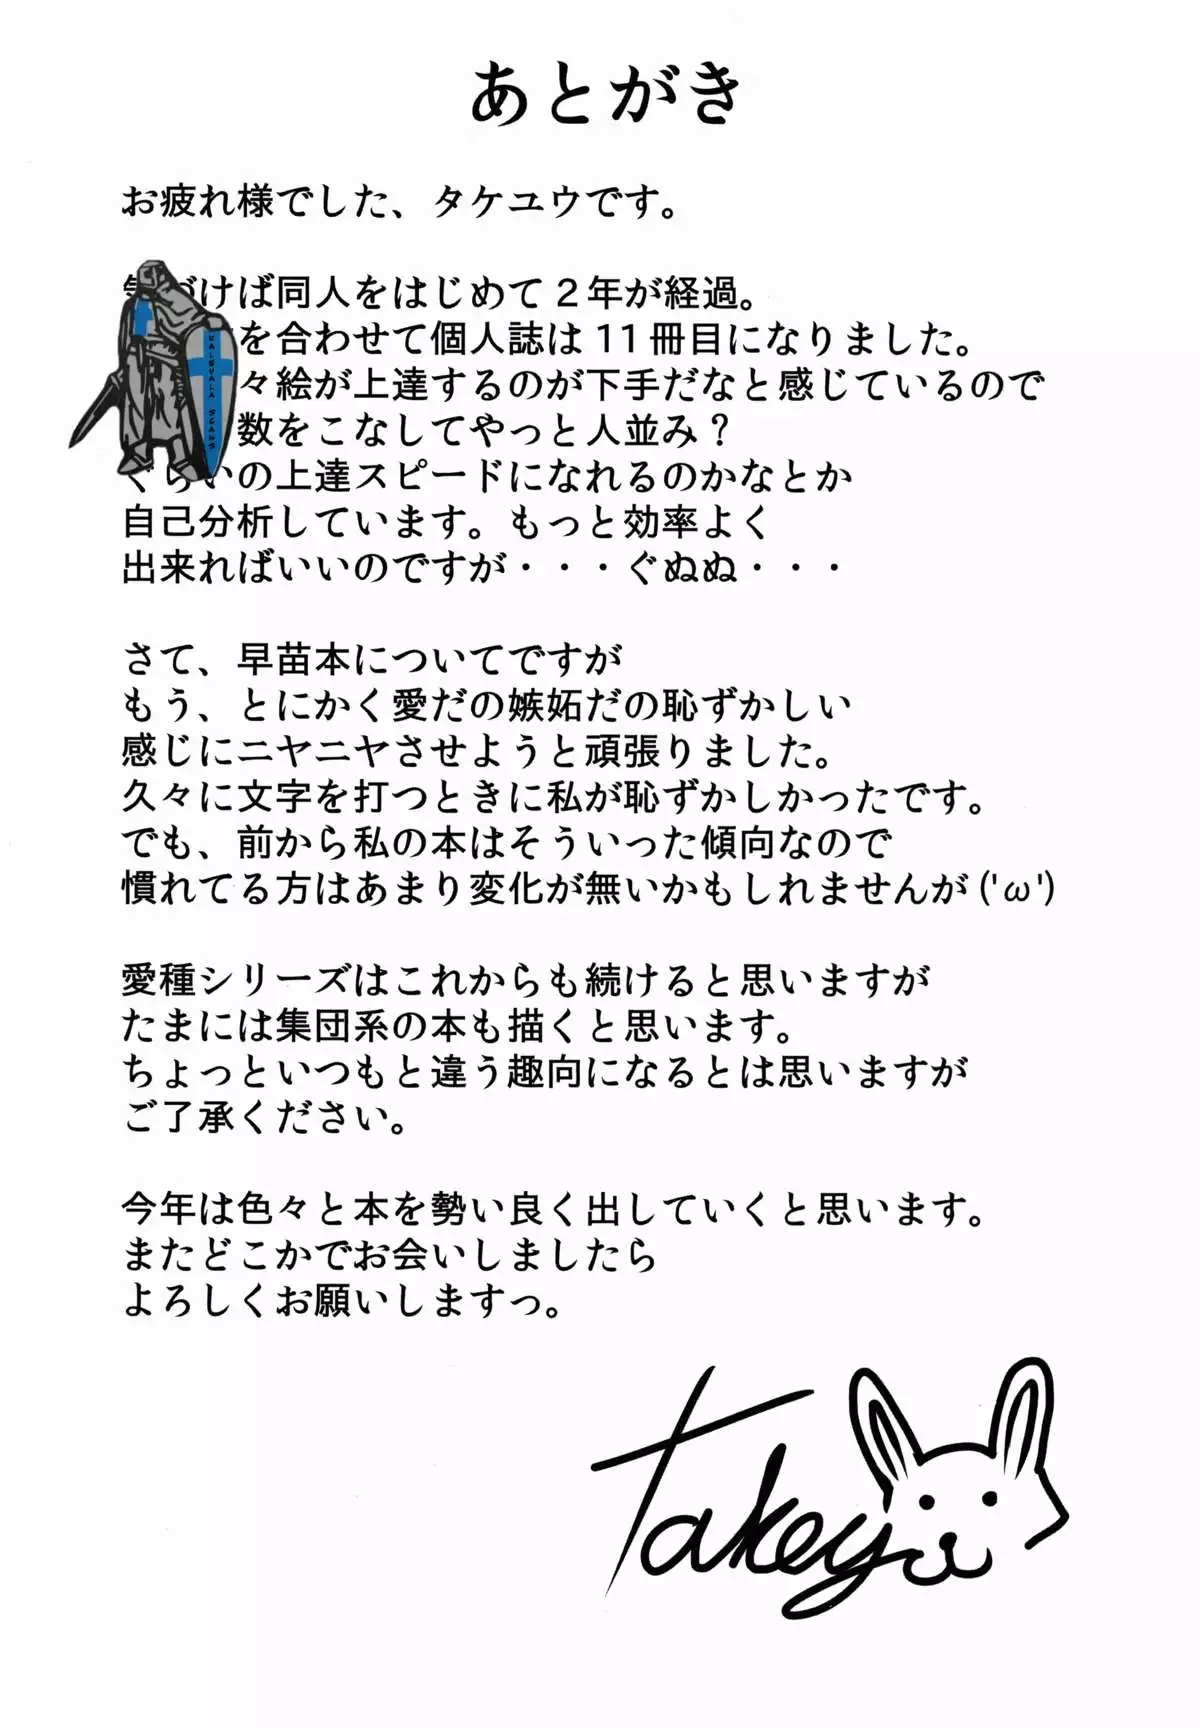 あとがき
お疲れ様でした、タケユウです。
づけば同人をはじめて2年が経過。
を合わせて個人誌は11冊目になりました。
々絵が上達するのが下手だなと感じているので
数をこなしてやっと人並み?
くらいの上達スピードになれるのかなとか
自己分析しています。もっと効率よく
出来ればいいのですが・・・ぐぬぬ・・・
さて、早苗本についてですが
もう、とにかく愛だの嫉妬だの恥ずかしい
感じにニヤニヤさせようと頑張りました。
久々に文字を打つときに私が恥ずかしかったです。
でも、前から私の本はそういった傾向なので
慣れてる方はあまり変化が無いかもしれませんが('ω')
愛種シリーズはこれからも続けると思いますが
たまには集団系の本も描くと思います。
ちょっといつもと違う趣向になるとは思いますが
ご了承ください。
今年は色々と本を勢い良く出していくと思います。
またどこかでお会いしましたら
よろしくお願いしますっ。
Takeyu
KALEVALA SCANS